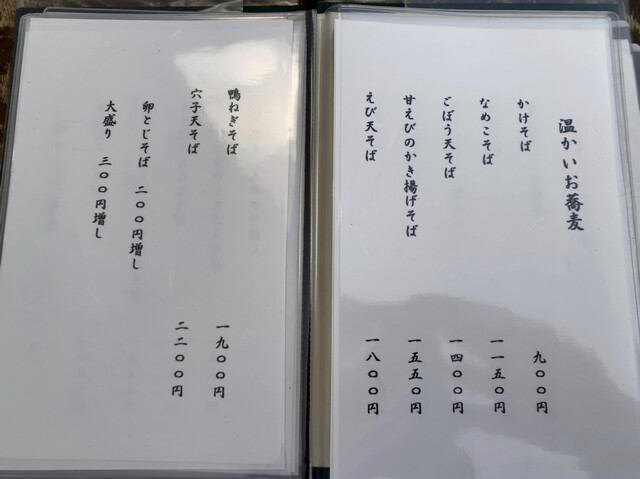 温かいお蕎麦
かけそば 九〇〇円
なめこそば 一一五〇円
ごぼう天そば 一四〇〇円
甘えびのかき揚げそば 一五五〇円
えび天そば 一八〇〇円
鴨ねぎそば 一九〇〇円
穴子天そば 二二〇〇円
卵とじそば 二〇〇円増し
大盛り 三〇〇円増し